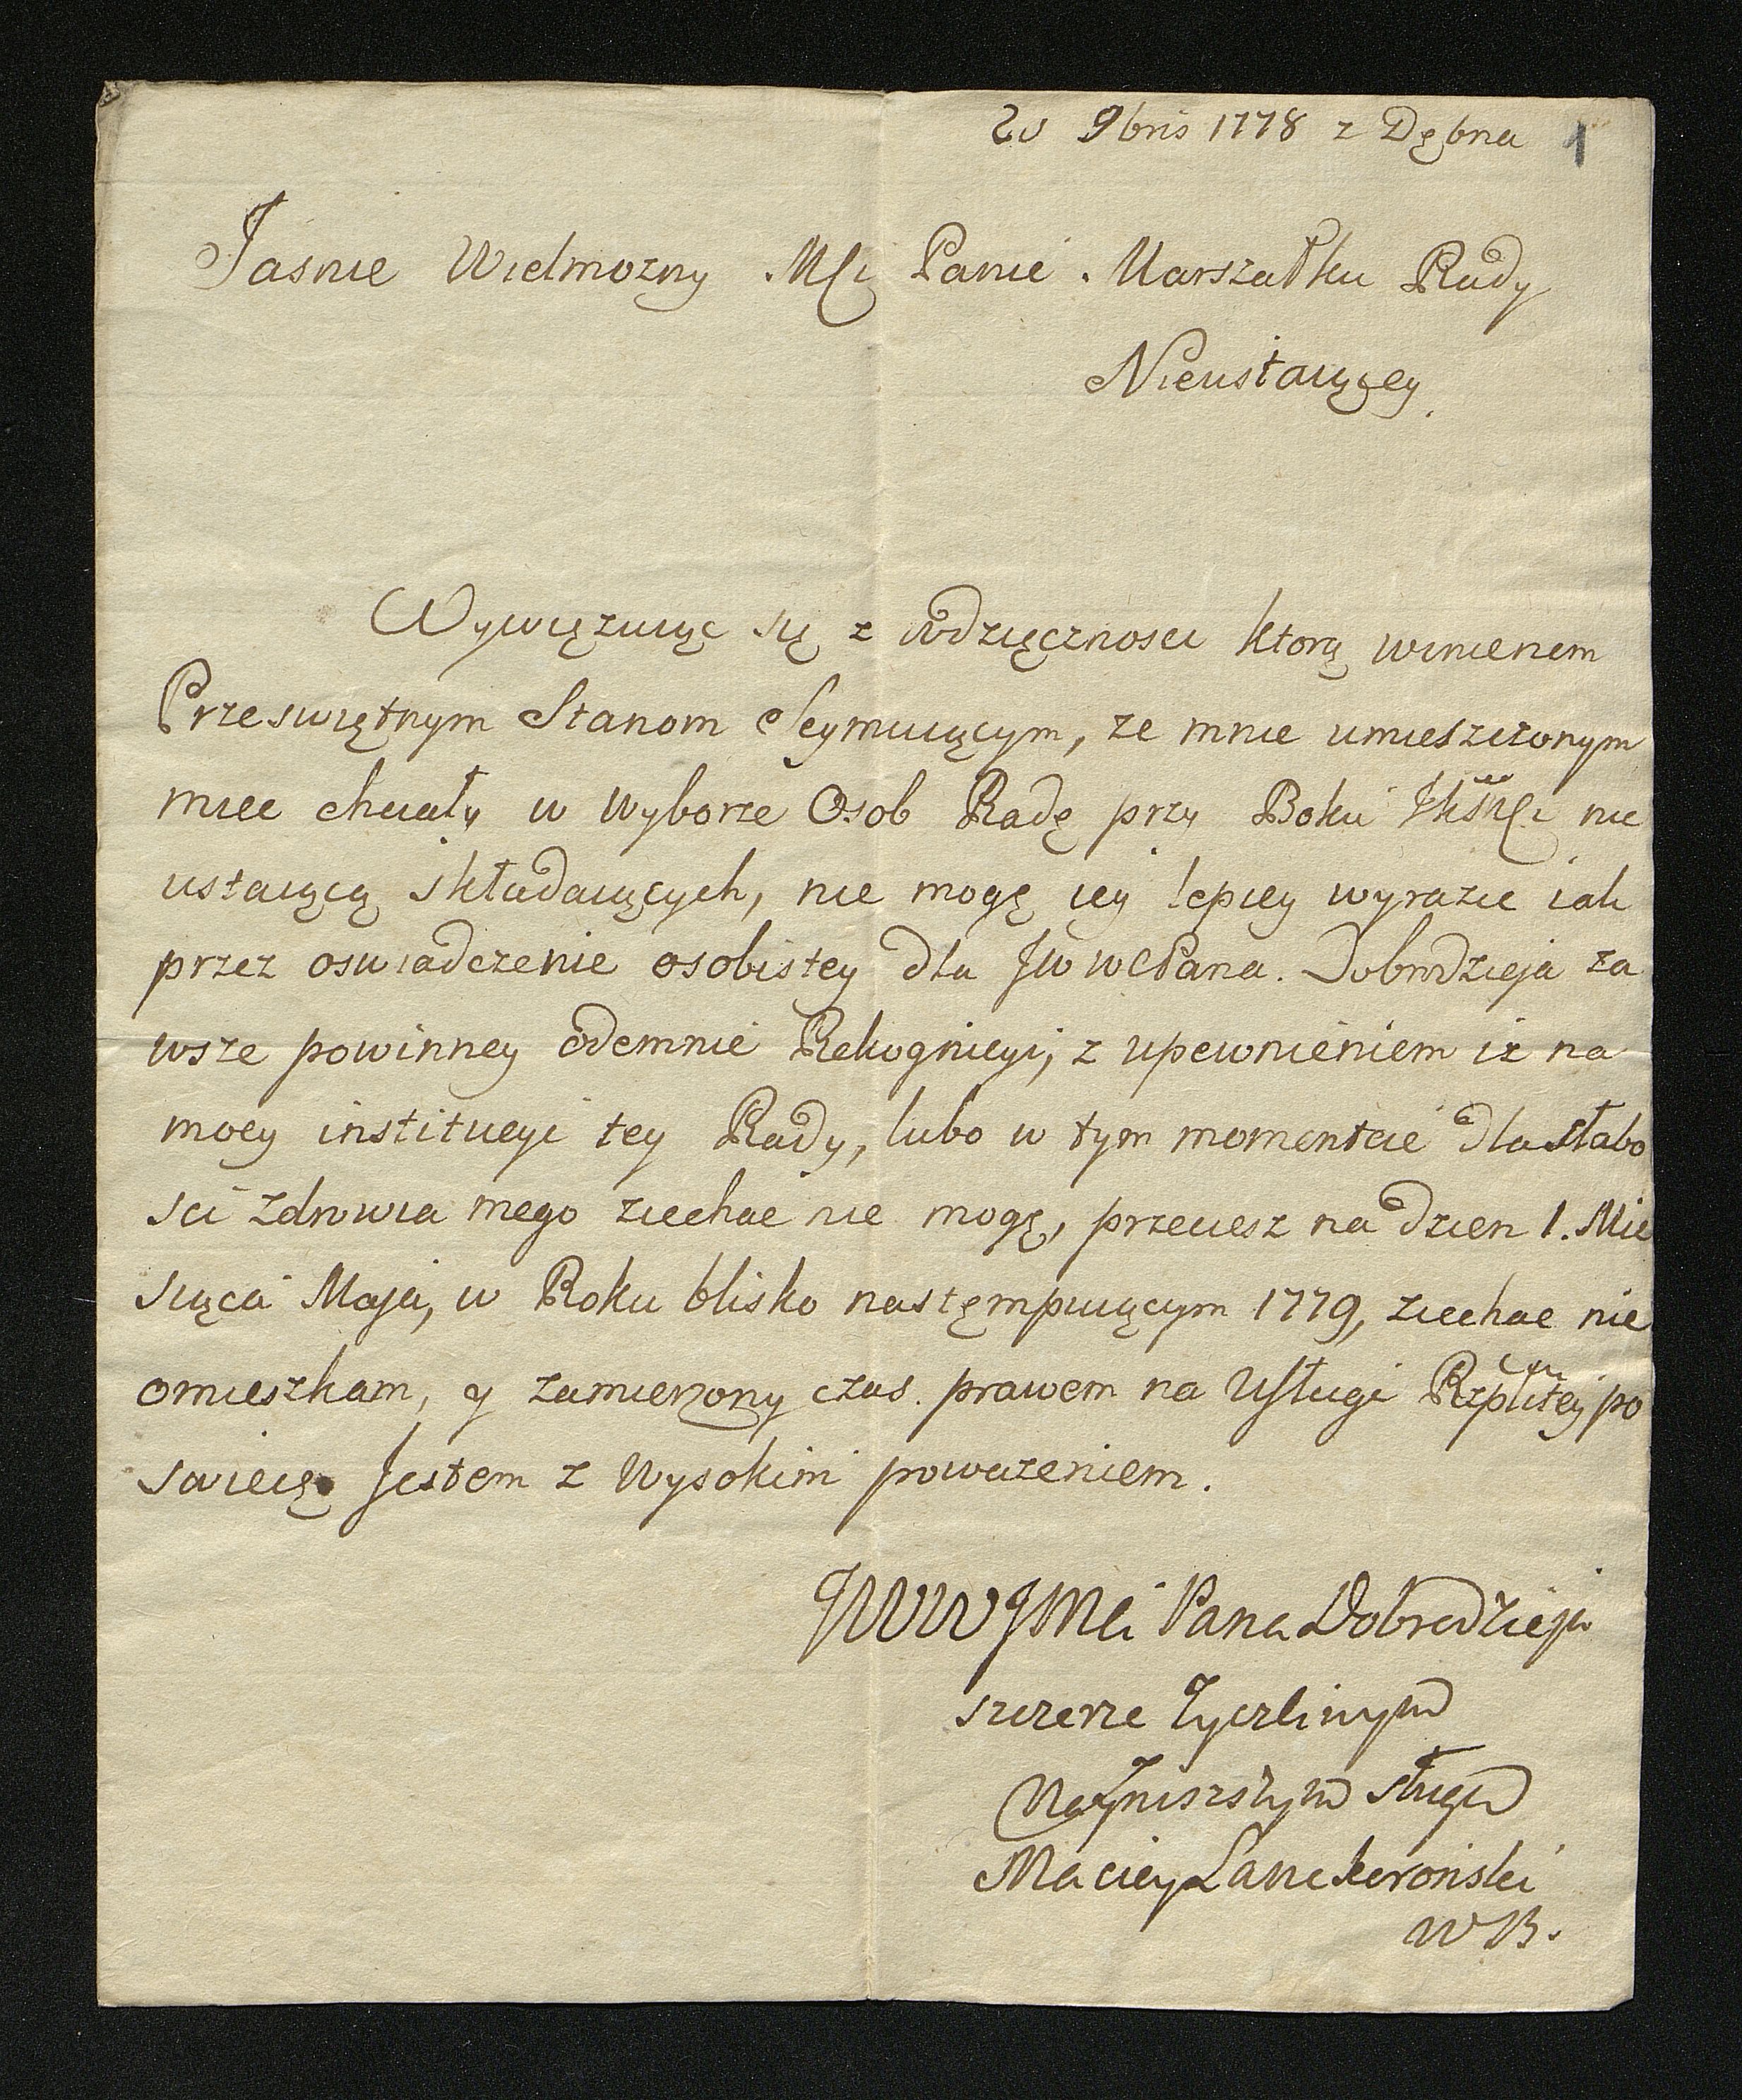 20 9bris 1778 z Dębna 1
Jasnie Wielmozny Mci Panie Marszałku Rady
Nieustaiącey.
Wywięzuiąc się z wdzięcznosci ktorą winienem
Przeswiętnym Stanom Seymuiącym, ze mnie umieszczonym
miec chciały w wyborze Osob Radę przy Boku JKSMci nie
ustaiącą składaiących, nie mogę iey lepiey wyrazic iak
przez oswiadczenie osobistey dla JWWCPana. Dobrodzieja za
wsze powinney odemnie Rekognicyi, z upewnieniem iż na
mocy institucyi tey Rady, lubo w tym momencie dla słabo
sci zdrowia mego ziechac nie mogę, przeciesz na dzien 1. Mie
siąca Maja, w Roku blisko następmpuiącym 1779, ziechac nie
omieszkam, y zamierzony czas prawem na Usługi Rzpltey po
swiecię. Jestem z Wysokim powazeniem.
JWWJMci Pana Dobrodzieja
szczerze Zyczliwym
Nayniszszym sługą
Maciey Lanckoroński
WB.